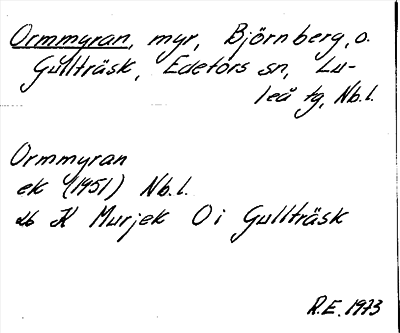 Ormmyran, myr, Björnberg, o.
Gullträsk, Edefors sn, Lu-
leå tg, Nb.l.
Ormmyran
ek (1951) Nb.l.
db K Murjek O i Gullträsk
R.E. 1973